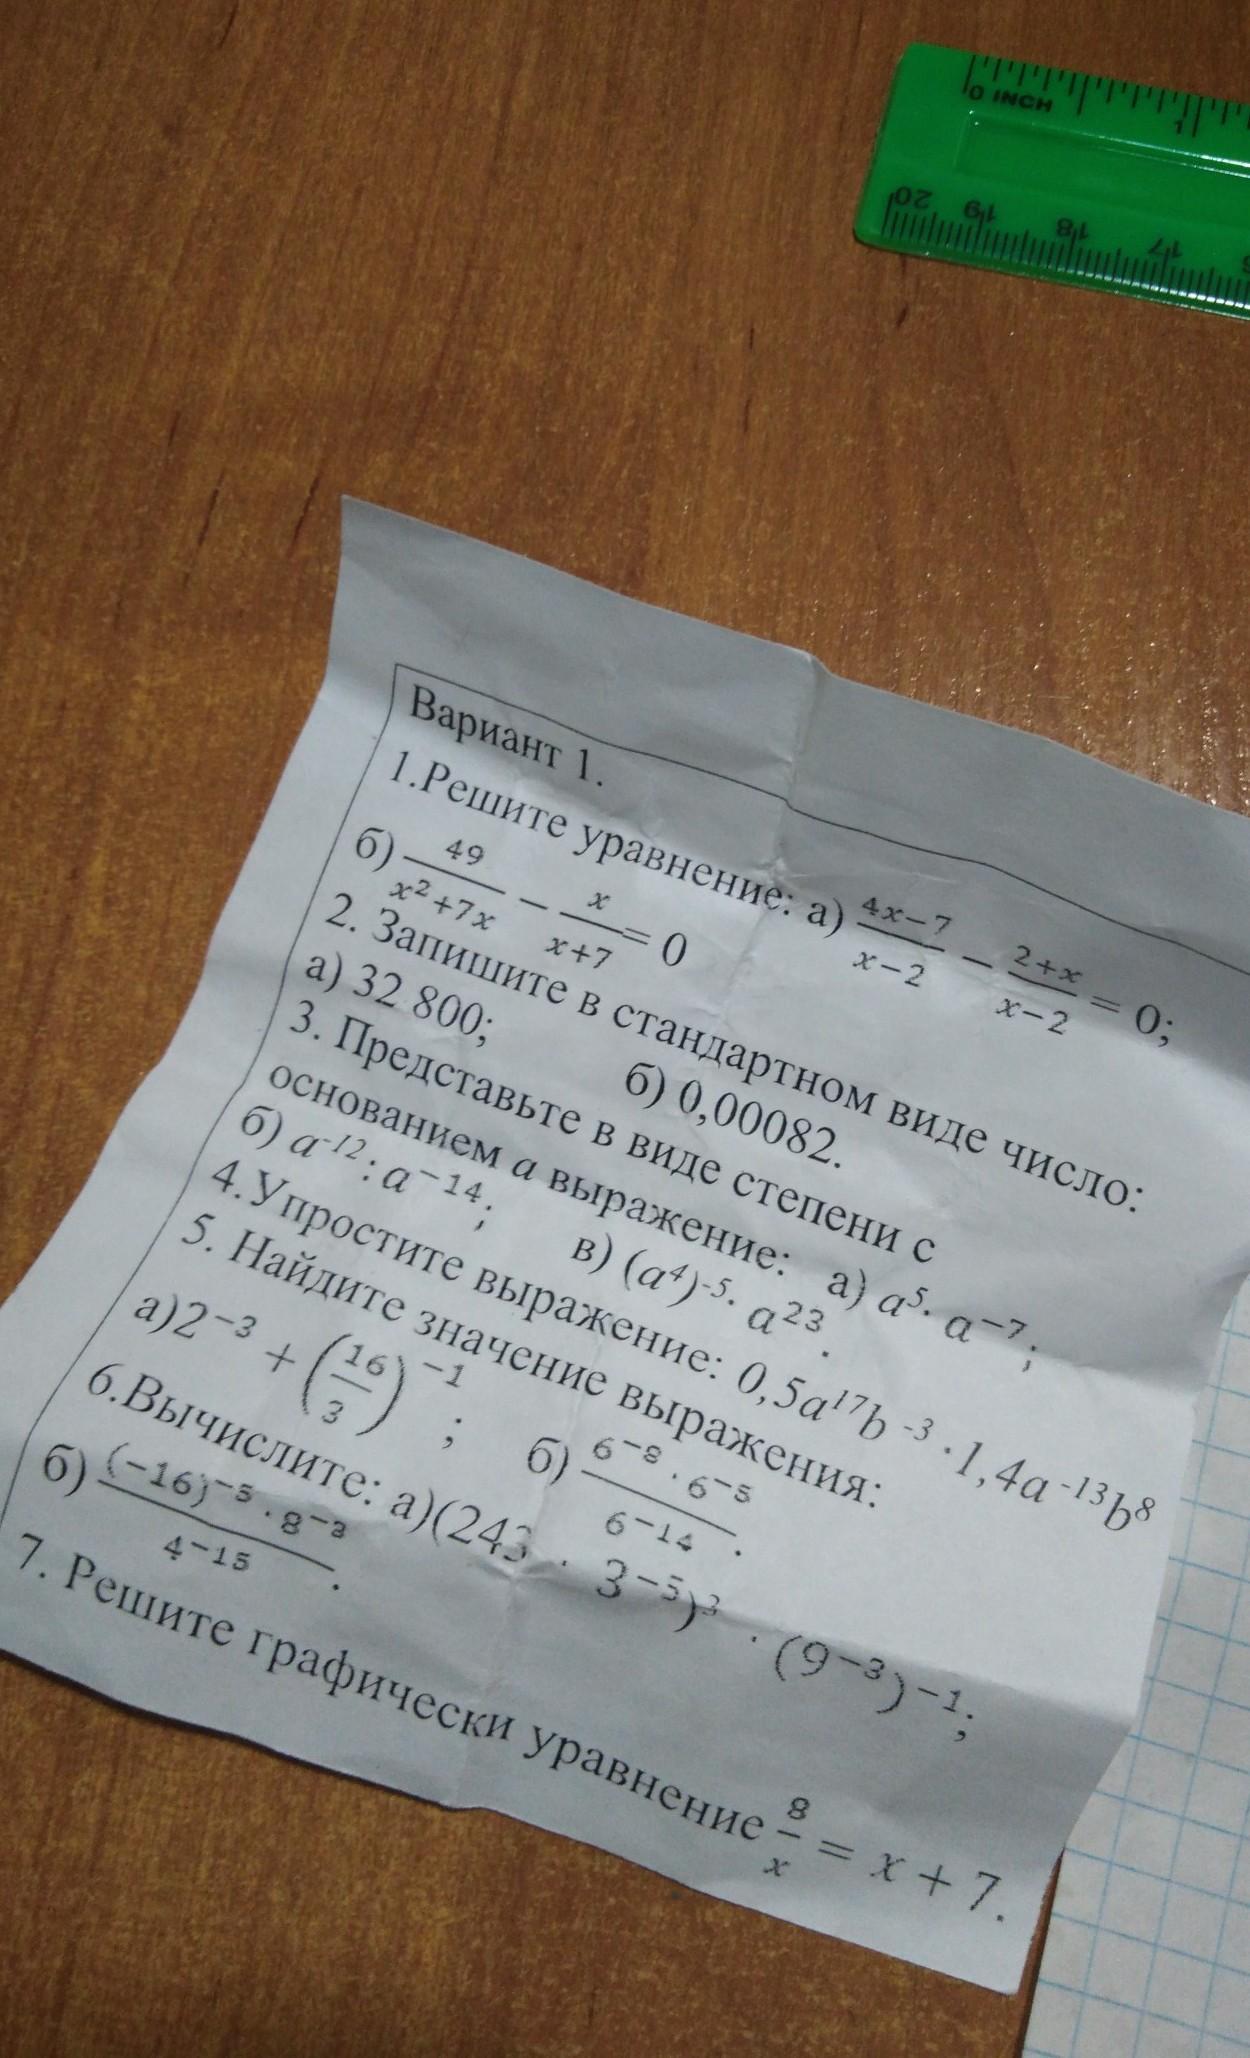 0 INCH 1
20 19 18 17
Вариант 1.
1.Решите уравнение: а) \frac{4x−7}{x−2} − \frac{2+x}{x−2} = 0;
б) \frac{49}{x²+7x} − \frac{x}{x+7} = 0
2. Запишите в стандартном виде число:
а) 32 800; б) 0,00082.
3. Представьте в виде степени с
основанием a выражение: а) a⁵· a⁻⁷;
б) a⁻¹² : a⁻¹⁴; в) (a⁴)⁻⁵· a²³.
4.Упростите выражение: 0,5a¹⁷b⁻³ · 1,4a⁻¹³b⁸
5. Найдите значение выражения:
а)2⁻³ + (\frac{16}{3})⁻¹; б) \frac{6⁻⁸ · 6⁻⁵}{6⁻¹⁴}.
6.Вычислите: а)(243 · 3⁻⁵)³ · (9⁻³)⁻¹;
б) \frac{(−16)⁻⁵ · 8⁻³}{4⁻¹⁵}.
7. Решите графически уравнение \frac{8}{x} = x + 7.